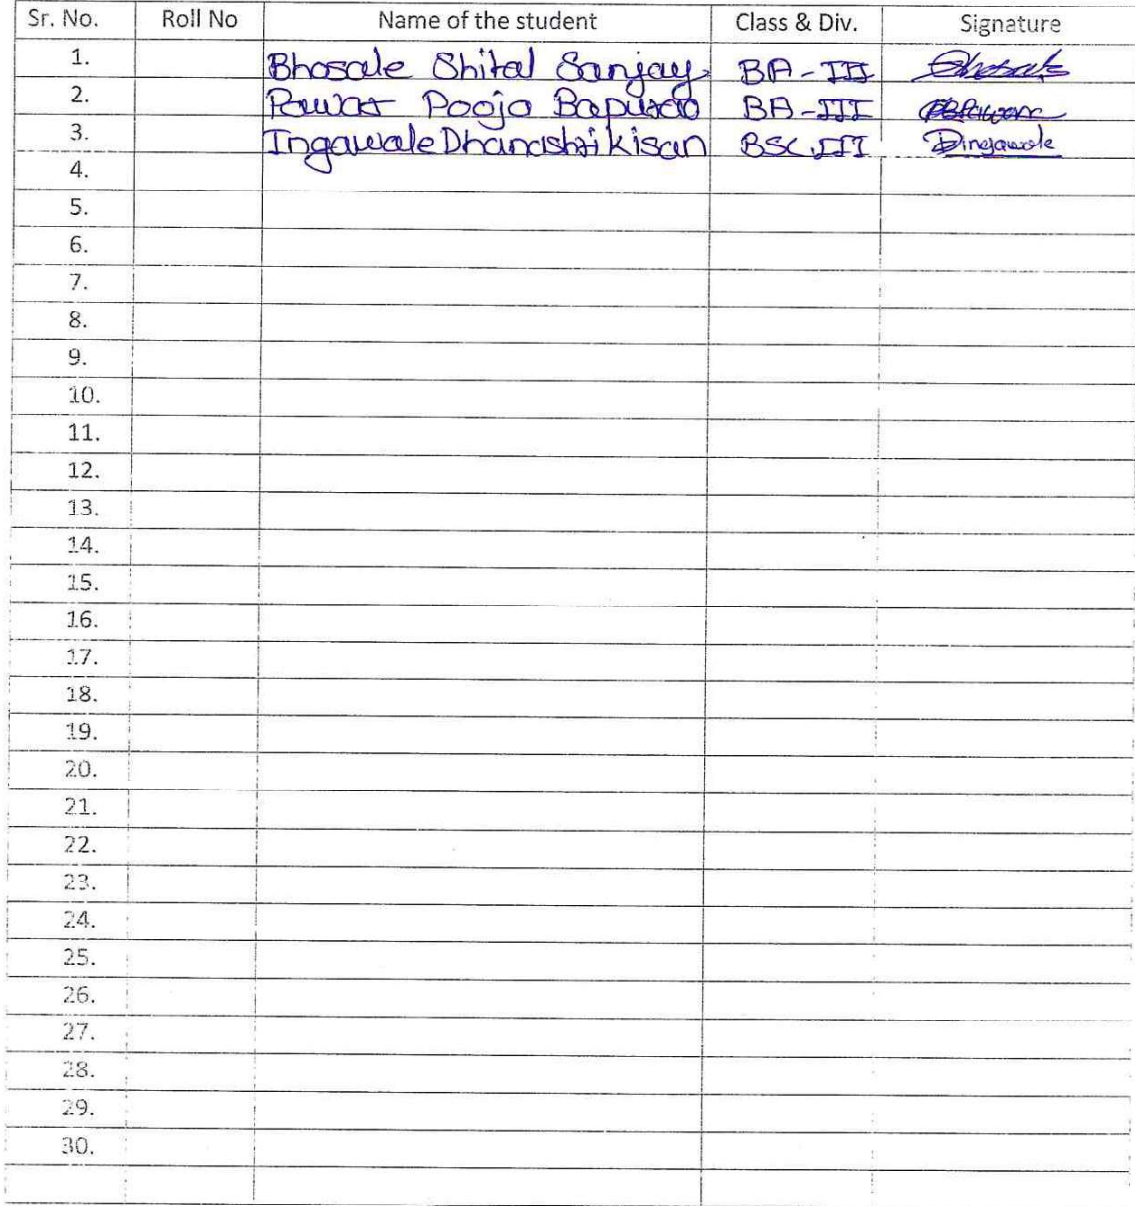 Sr. No. Roll No Name of the student Class & Div. Signature
1. Bhosale Shital Sanjay BA-III Bhosale
2. Pawar Pooja Bapurao BA-III PBPawar
3. Ingawale Dhanashri kisan BSC.III Dingawale
4.
5.
6.
7.
8.
9.
10.
11.
12.
13.
14.
15.
16.
17.
18.
19.
20.
21.
22.
23.
24.
25.
26.
27.
28.
29.
30.